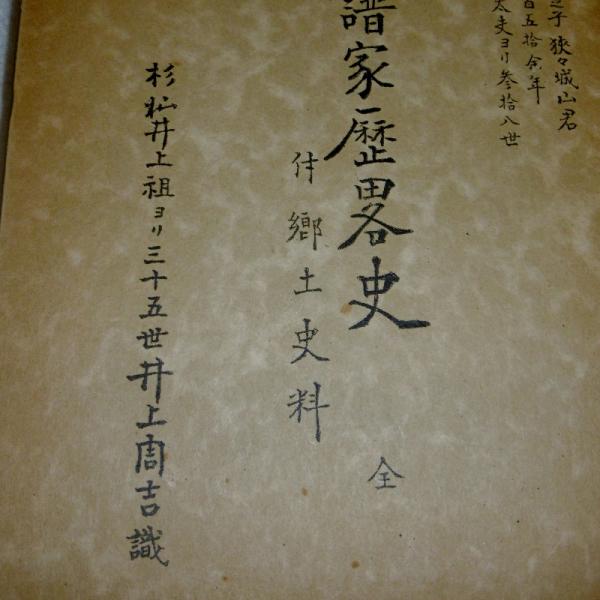 之子狹々城山君
百五拾余年
太夫ヨリ参拾八世
譜家歴畧史 全
付郷土史料
杉山井上祖ヨリ三十五世井上周吉識